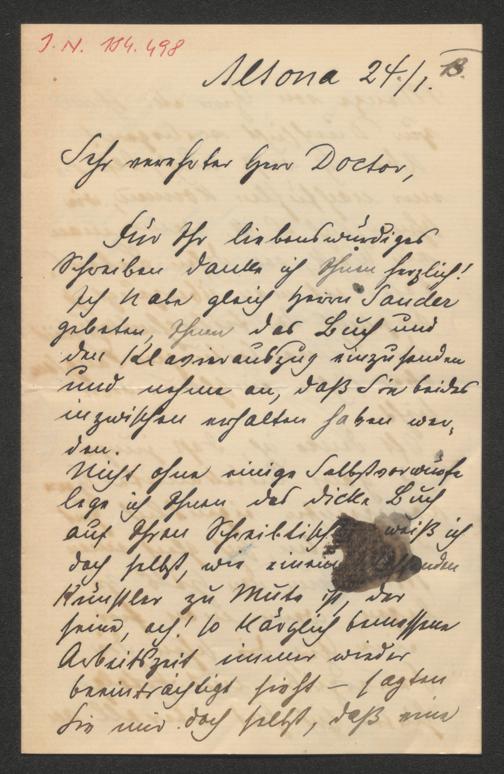 J. N. 184.498
Altona 24./1. 13.
Sehr verehrter Herr Doctor,
Für Ihr liebenswürdiges
Schreiben danke ich Ihnen herzlich!
Ich habe gleich Herrn Sander
gebeten, Ihnen das Buch und
den Klavierauszug einzusenden
und nehme an, daß Sie beides
inzwischen erhalten haben wer-
den.
Nicht ohne einige Selbstvorwürfe
lege ich Ihnen das dicke Buch
auf Ihren Schreibtisch, weiß ich
doch selbst, wie einem
Künstler zu Mute ist, der
seine, ach! so kärglich bemessene
Arbeitszeit immer wieder
beeinträchtigt sieht – sagten
Sie mir doch selbst, daß eine